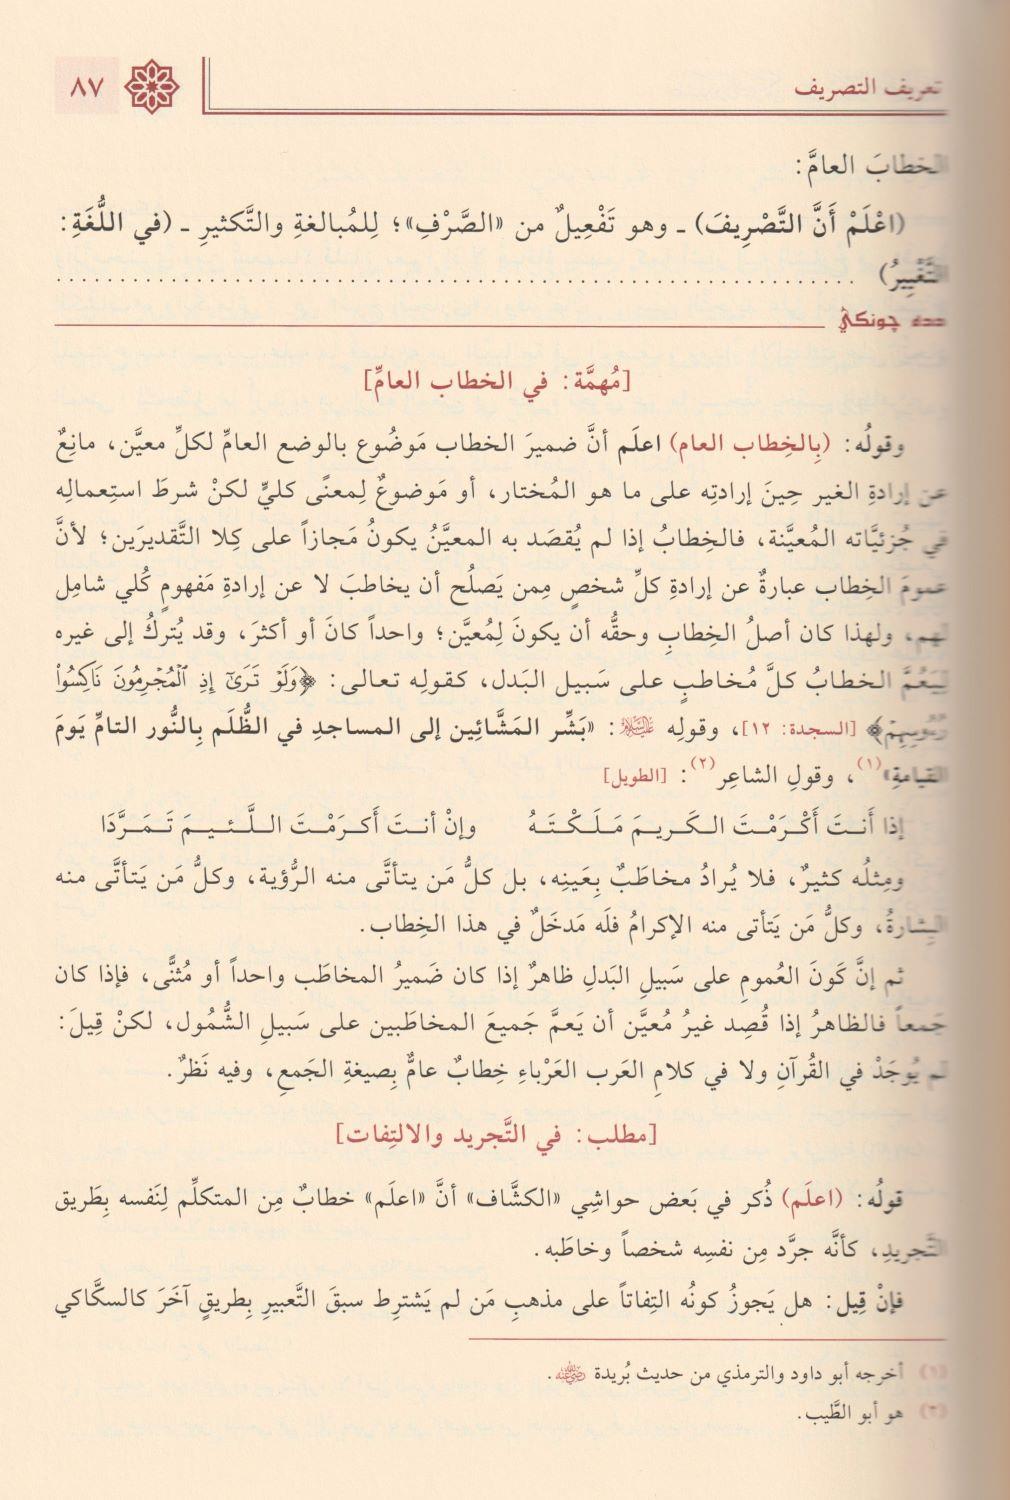 تعريف التصريف ٨٧
الخطابَ العامَّ:
(اعْلَمْ أَنَّ التَّصْرِيفَ) ـ وهو تَفْعِيلٌ من «الصَّرْفِ»؛ لِلمُبالغةِ والتَّكثيرِ ـ (في اللُّغَةِ:
التَّغْيِيرُ) ............................................................
دده چونكي
[مُهمَّة: في الخطاب العامِّ]
وقولُه: (بِالخِطاب العام) اعلَم أنَّ ضميرَ الخطاب مَوضُوع بالوضع العامِّ لكلِّ معيَّن، مانِعٌ
عن إرادةِ الغير حِينَ إرادتِه على ما هو المُختار، أو مَوضوعٌ لِمعنًى كليٍّ لكنْ شرطَ استِعمالِه
في جُزئيَّاته المُعيَّنة، فالخِطابُ إذا لم يُقصَد به المعيَّنُ يكونُ مَجازاً على كِلا التَّقديرَين؛ لأنَّ
عمومَ الخِطاب عبارةٌ عن إرادةِ كلِّ شخصٍ مِمن يَصلُح أن يخاطبَ لا عن إرادةِ مَفهومٍ كُلي شامِل
لهم، ولهذا كان أصلُ الخِطابِ وحقُّه أن يكونَ لِمُعيَّن؛ واحداً كانَ أو أكثرَ، وقد يُتركُ إلى غيره
لِيَعُمَّ الخطابُ كلَّ مُخاطبٍ على سَبيل البَدل، كقولِه تعالى: ﴿وَلَوْ تَرَىٰٓ إِذِ ٱلْمُجْرِمُونَ نَاكِسُوا۟
رُءُوسِهِمْ﴾ [السجدة: ١٢]، وقولِه عليه السلام: «بَشِّر المَشَّائِين إلى المساجدِ في الظُّلَم بِالنُّور التامِّ يَومَ
القيامةِ»(١)، وقولِ الشاعِر(٢): [الطويل]
إذا أَنــتَ أَكْـرَمْــتَ الـكَـريـمَ مَـلَـكْـتَـهُ وإنْ أنــتَ أَكـرَمْـتَ الـلَّـئـيـمَ تَـمَـرَّدَا
ومِثلُه كثيرٌ، فلا يُرادُ مخاطَبٌ بِعَينِه، بل كلُّ مَن يتأتَّى منه الرُّؤية، وكلُّ مَن يَتأتَّى منه
البِشارةُ، وكلُّ مَن يَتأتى منه الإكرامُ فلَه مَدخَلٌ في هذا الخِطاب.
ثم إنَّ كَونَ العُمومِ على سَبيلِ البَدلِ ظاهرٌ إذا كان ضَميرُ المخاطَب واحداً أو مُثنًّى، فإذا كان
جَمعاً فالظاهرُ إذا قُصِد غيرُ مُعيَّن أن يَعمَّ جَميعَ المخاطَبين على سَبيلِ الشُّمُول، لكنْ قِيلَ:
لم يُوجَدْ في القُرآن ولا في كلامِ العَرب العَرْباءِ خِطابٌ عامٌّ بِصيغةِ الجَمعِ، وفيه نَظرٌ.
[مطلب: في التَّجريد والالتِفات]
قولُه: (اعلَم) ذُكر في بَعض حواشِي «الكشَّاف» أنَّ «اعلَم» خطابٌ مِن المتكلِّم لِنَفسه بِطَريق
التَّجريدِ، كأنَّه جرَّد مِن نفسِه شخصاً وخاطَبه.
فإنْ قِيل: هل يَجوزُ كونُه التِفاتاً على مذهبِ مَن لم يَشترِط سبقَ التَّعبيرِ بِطريقٍ آخَرَ كالسكَّاكي
(١) أخرجه أبو داود والترمذي من حديث بُريدة رضي الله عنه.
(٢) هو أبو الطَّيب.